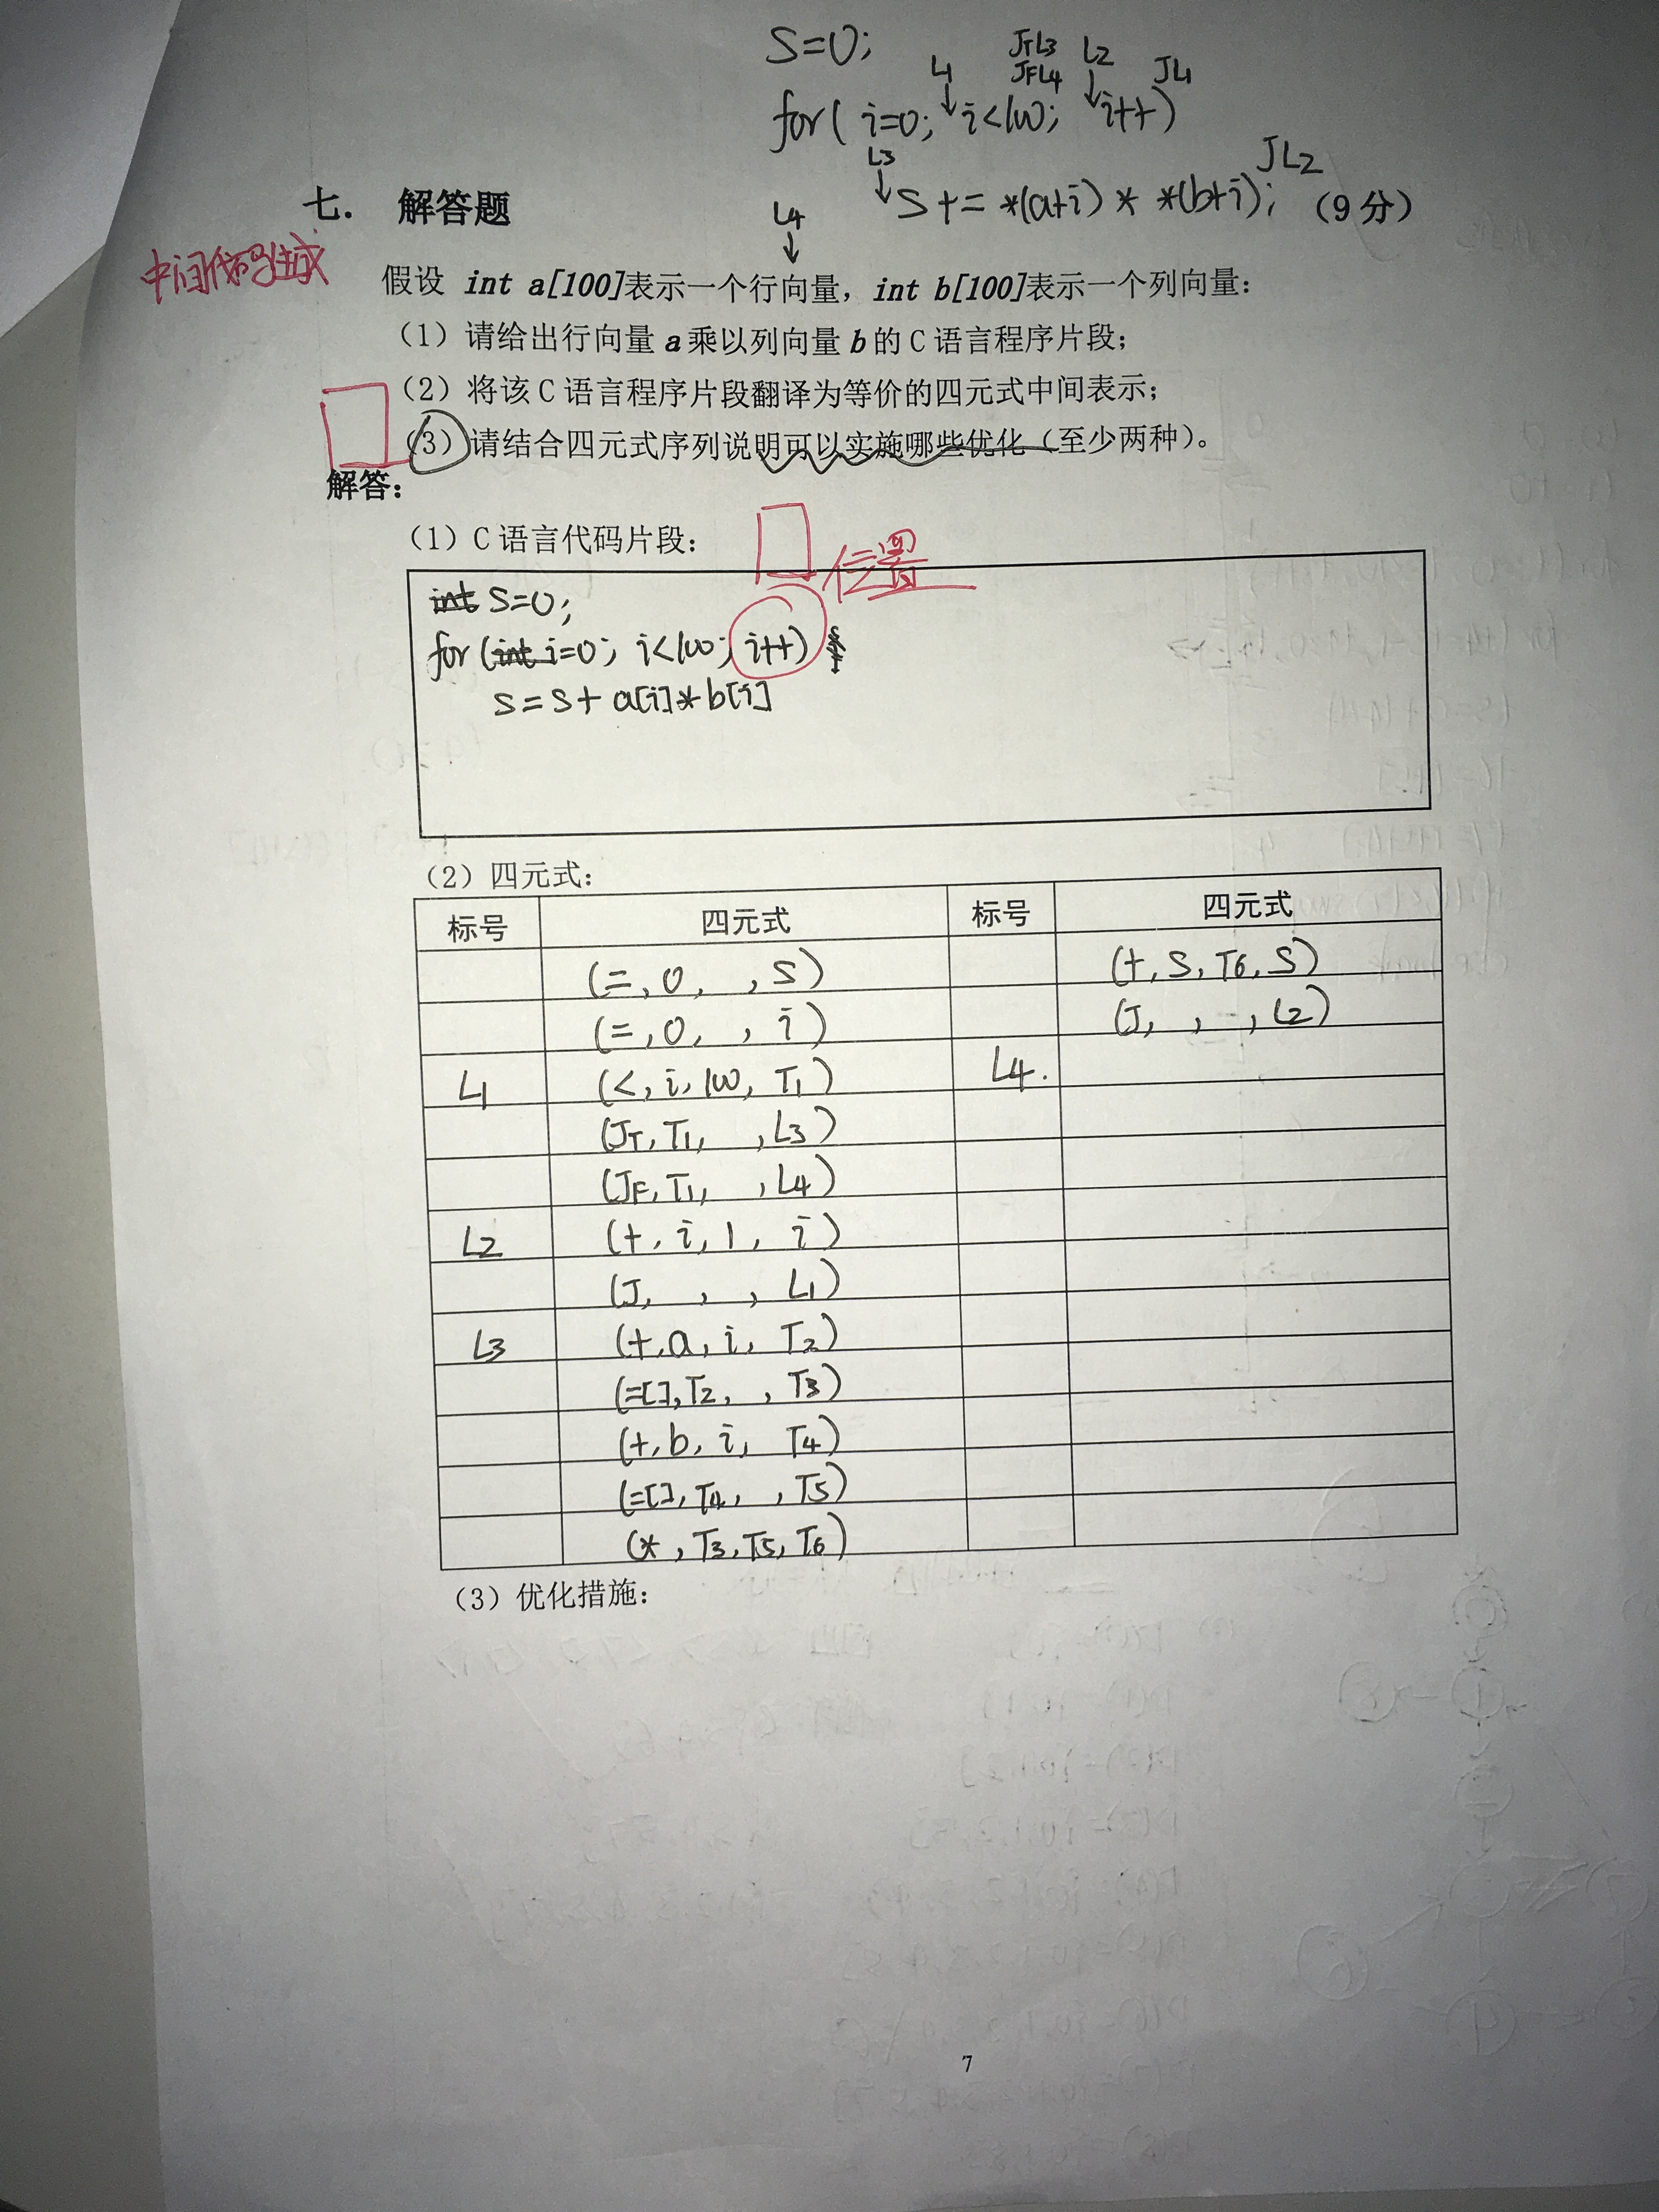 S=0;
L1 JTL3 L2 JL1
JFL4
for( i=0; i<100; i++)
L3 JL2
S += *(a+i) * *(b+i);
七. 解答题 （9 分）
L4
中间代码生成
假设 int a[100]表示一个行向量，int b[100]表示一个列向量：
（1）请给出行向量 a 乘以列向量 b 的 C 语言程序片段；
（2）将该 C 语言程序片段翻译为等价的四元式中间表示；
（3）请结合四元式序列说明可以实施哪些优化（至少两种）。
解答：
（1）C 语言代码片段：
位置
int S=0;
for (int i=0; i<100; i++)
S=S+ a[i]*b[i]
（2）四元式：
标号 四元式 标号 四元式
(=,0, ,S) (+,S,T6,S)
(=,0, ,i) (J, , ,L2)
L1 (<,i,100,T1) L4.
(JT,T1, ,L3)
(JF,T1, ,L4)
L2 (+,i,1,i)
(J, , ,L1)
L3 (+,a,i,T2)
(=[],T2, ,T3)
(+,b,i,T4)
(=[],T4, ,T5)
(*,T3,T5,T6)
（3）优化措施：
7